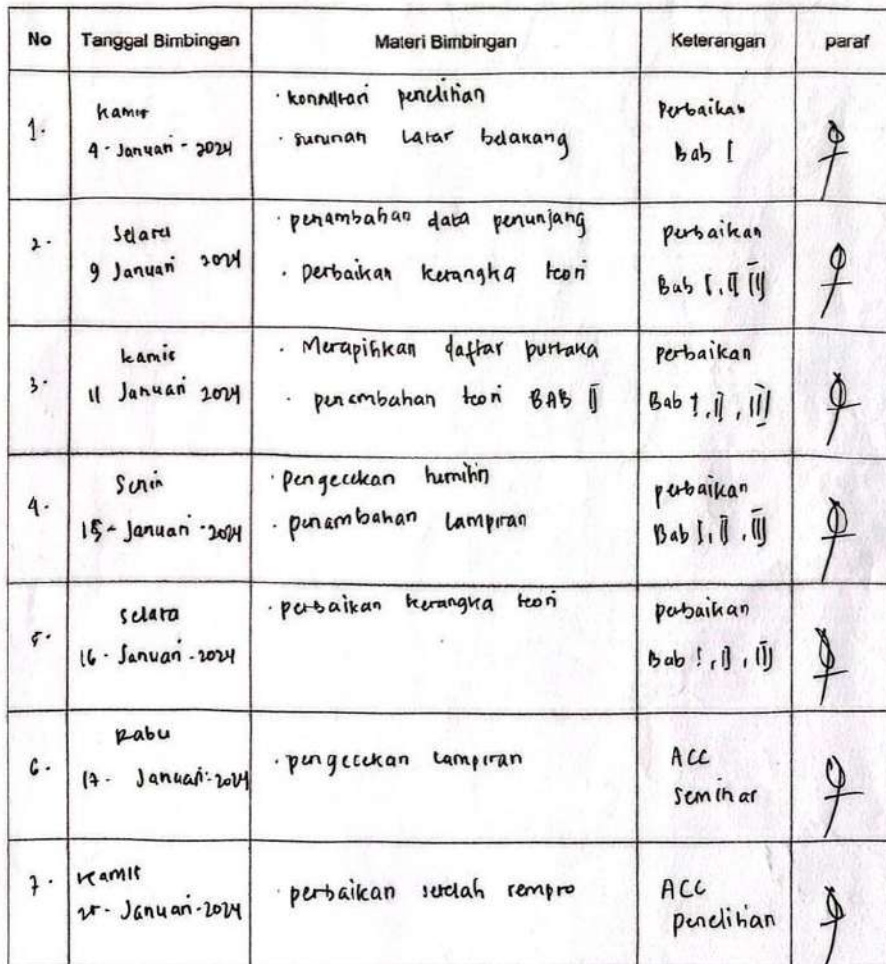 No Tanggal Bimbingan Materi Bimbingan Keterangan paraf
1. Kamis
4 - Januari - 2024
· konsultasi penelitian
· susunan Latar belakang
Perbaikan
Bab I
2. Selasa
9 Januari 2024
· penambahan data penunjang
· perbaikan kerangka teori
perbaikan
Bab I, II III
3. kamis
11 Januari 2024
· Merapihkan daftar pustaka
· penambahan teori BAB II
perbaikan
Bab I, II, III
4. Senin
15 - Januari - 2024
· pengecekan
· penambahan Lampiran
perbaikan
Bab I, II, III
5. selasa
16 - Januari - 2024
· perbaikan kerangka teori
perbaikan
Bab I, II, III
6. Rabu
17 - Januari - 2024
· pengecekan lampiran
ACC
seminar
7. Kamis
25 - Januari - 2024
· perbaikan setelah sempro
ACC
penelitian